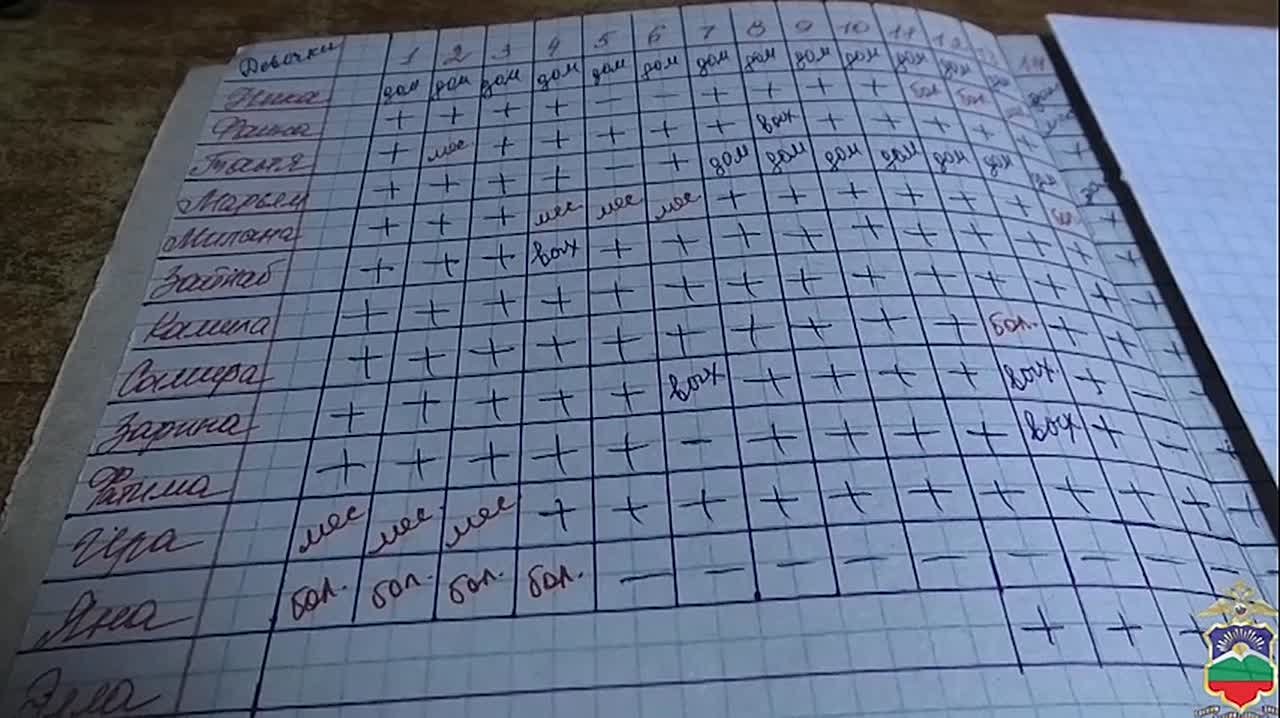 Девочки 1 2 3 4 5 6 7 8 9 10 11 12 13 14
Ника дом дом дом дом дом дом дом дом дом дом дом дом дом
Фаина + + + + − − + + + + бол бол
Таня + мес + + + + + вых + + + + +
Марьям + + + + − + дом дом дом дом дом дом
Милана + + + мес мес мес + + + + + + бол
Зайнаб + + + вых + + + + + + + + +
Камила + + + + + + + + + + + + + +
Самира + + + + + + + + + + + бол. + +
Зарина + + + + + вых + + + + вых + −
Фатима + + + + + − + + + + вых + − +
Ира мес мес. мес + + + + + + + + + + +
Яна бол. бол. бол. бол. − − − − − − − − −
Элла + + +